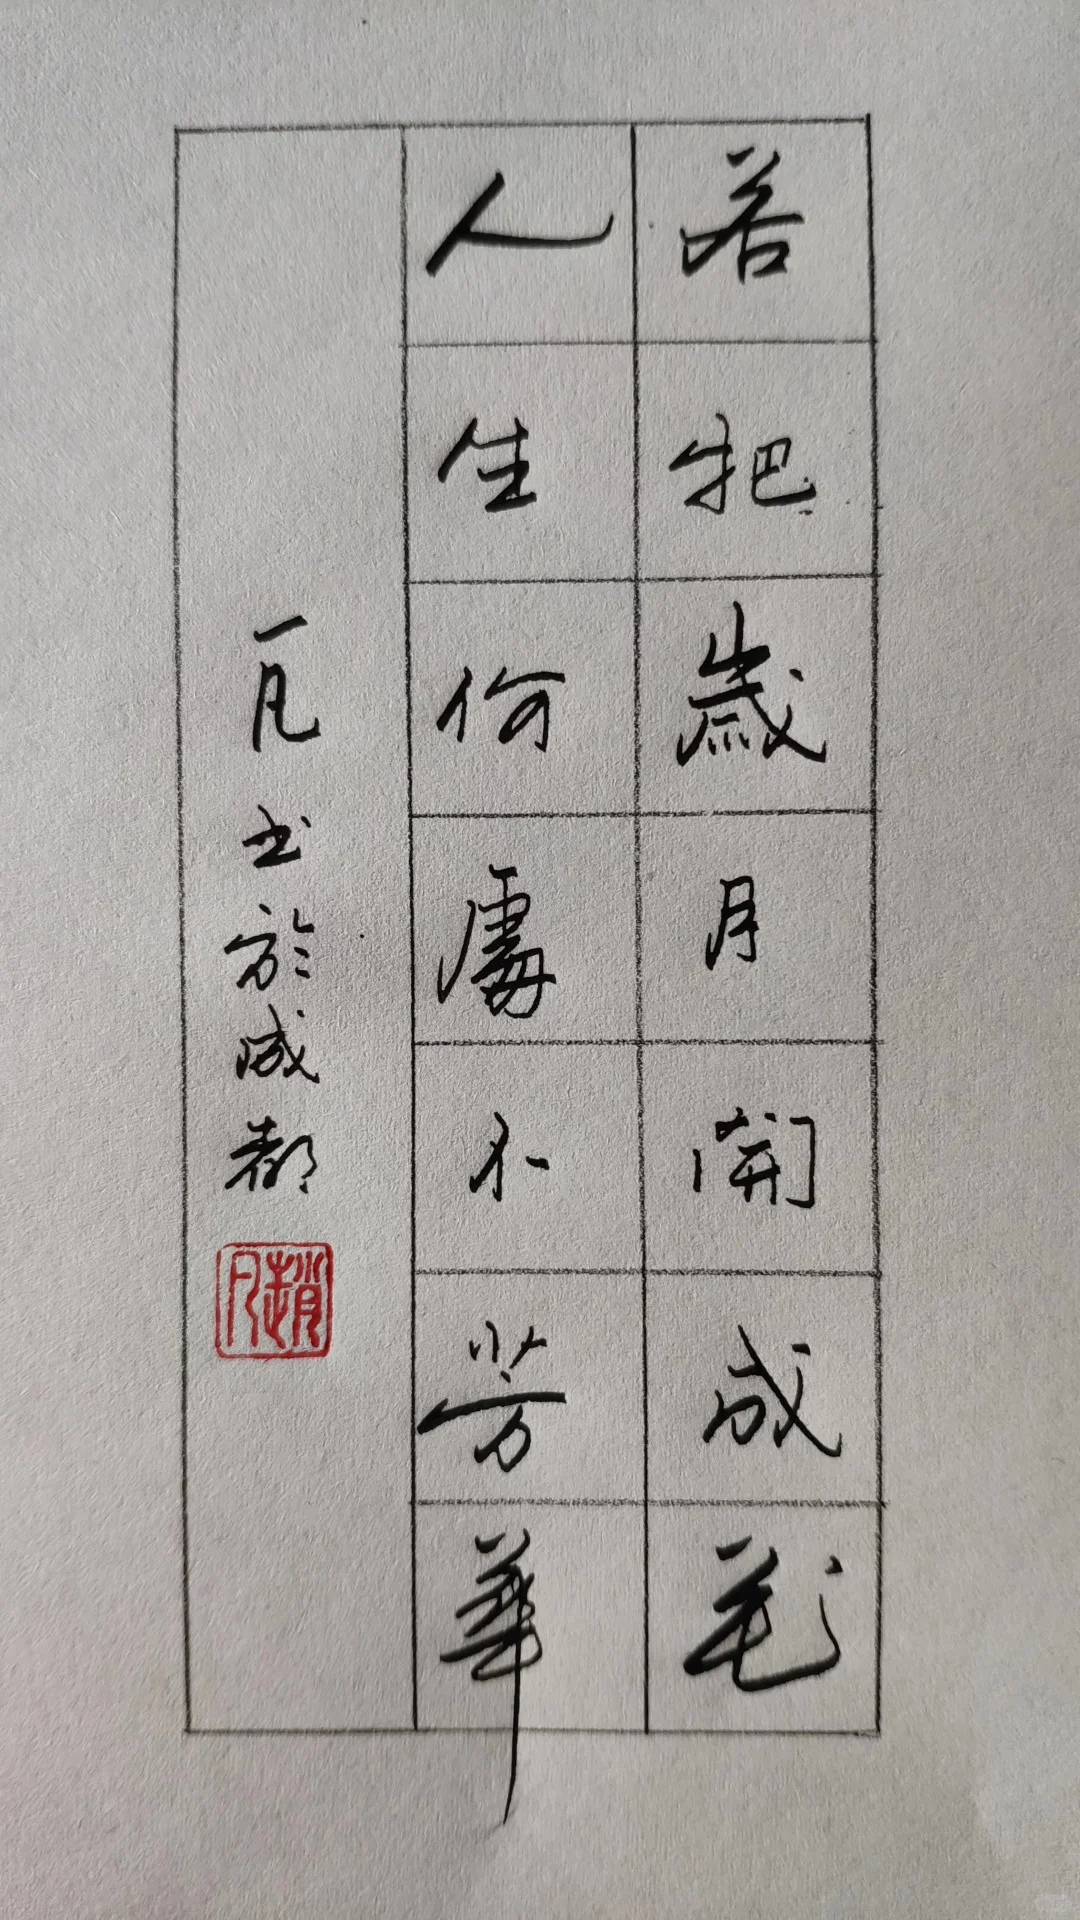 若把歲月開成花
人生何處不芳華
一凡书於成都
趙凡